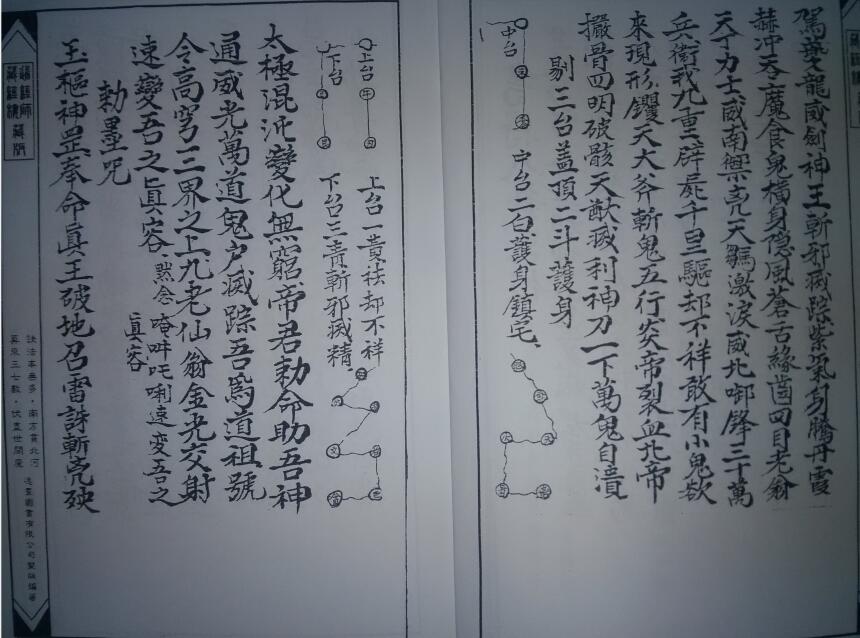 駕夔龍威劍神王斬邪滅踪紫氣乘騰丹霞
赫冲吞魔食鬼橫身隠風蒼舌緑齒四目老翁
天丁力士威南禦兇天騶激淚威北啣鋒三十萬
兵衛我九重辟屍千里驅却不祥敢有小鬼欲
來現形钁天大斧斬鬼五行炎帝裂血北帝
撒骨四明破骸天猷滅利神刀一下萬鬼自潰
剔三台盖頂二斗護身
中台
中台二白護身鎮宅、
上台
上台一黃祛却不祥
下台
下台三青斬邪滅精
太極混沌變化無窮帝君勅命助吾神
通威光萬道鬼户滅踪吾爲道祖號
令高穹三界之上九老仙翁金光交射
速變吾之眞容、默念唵吽吒唎速变吾之
眞容
勅墨咒
玉樞神罡奉命眞王破地召雷誅斬兇殃